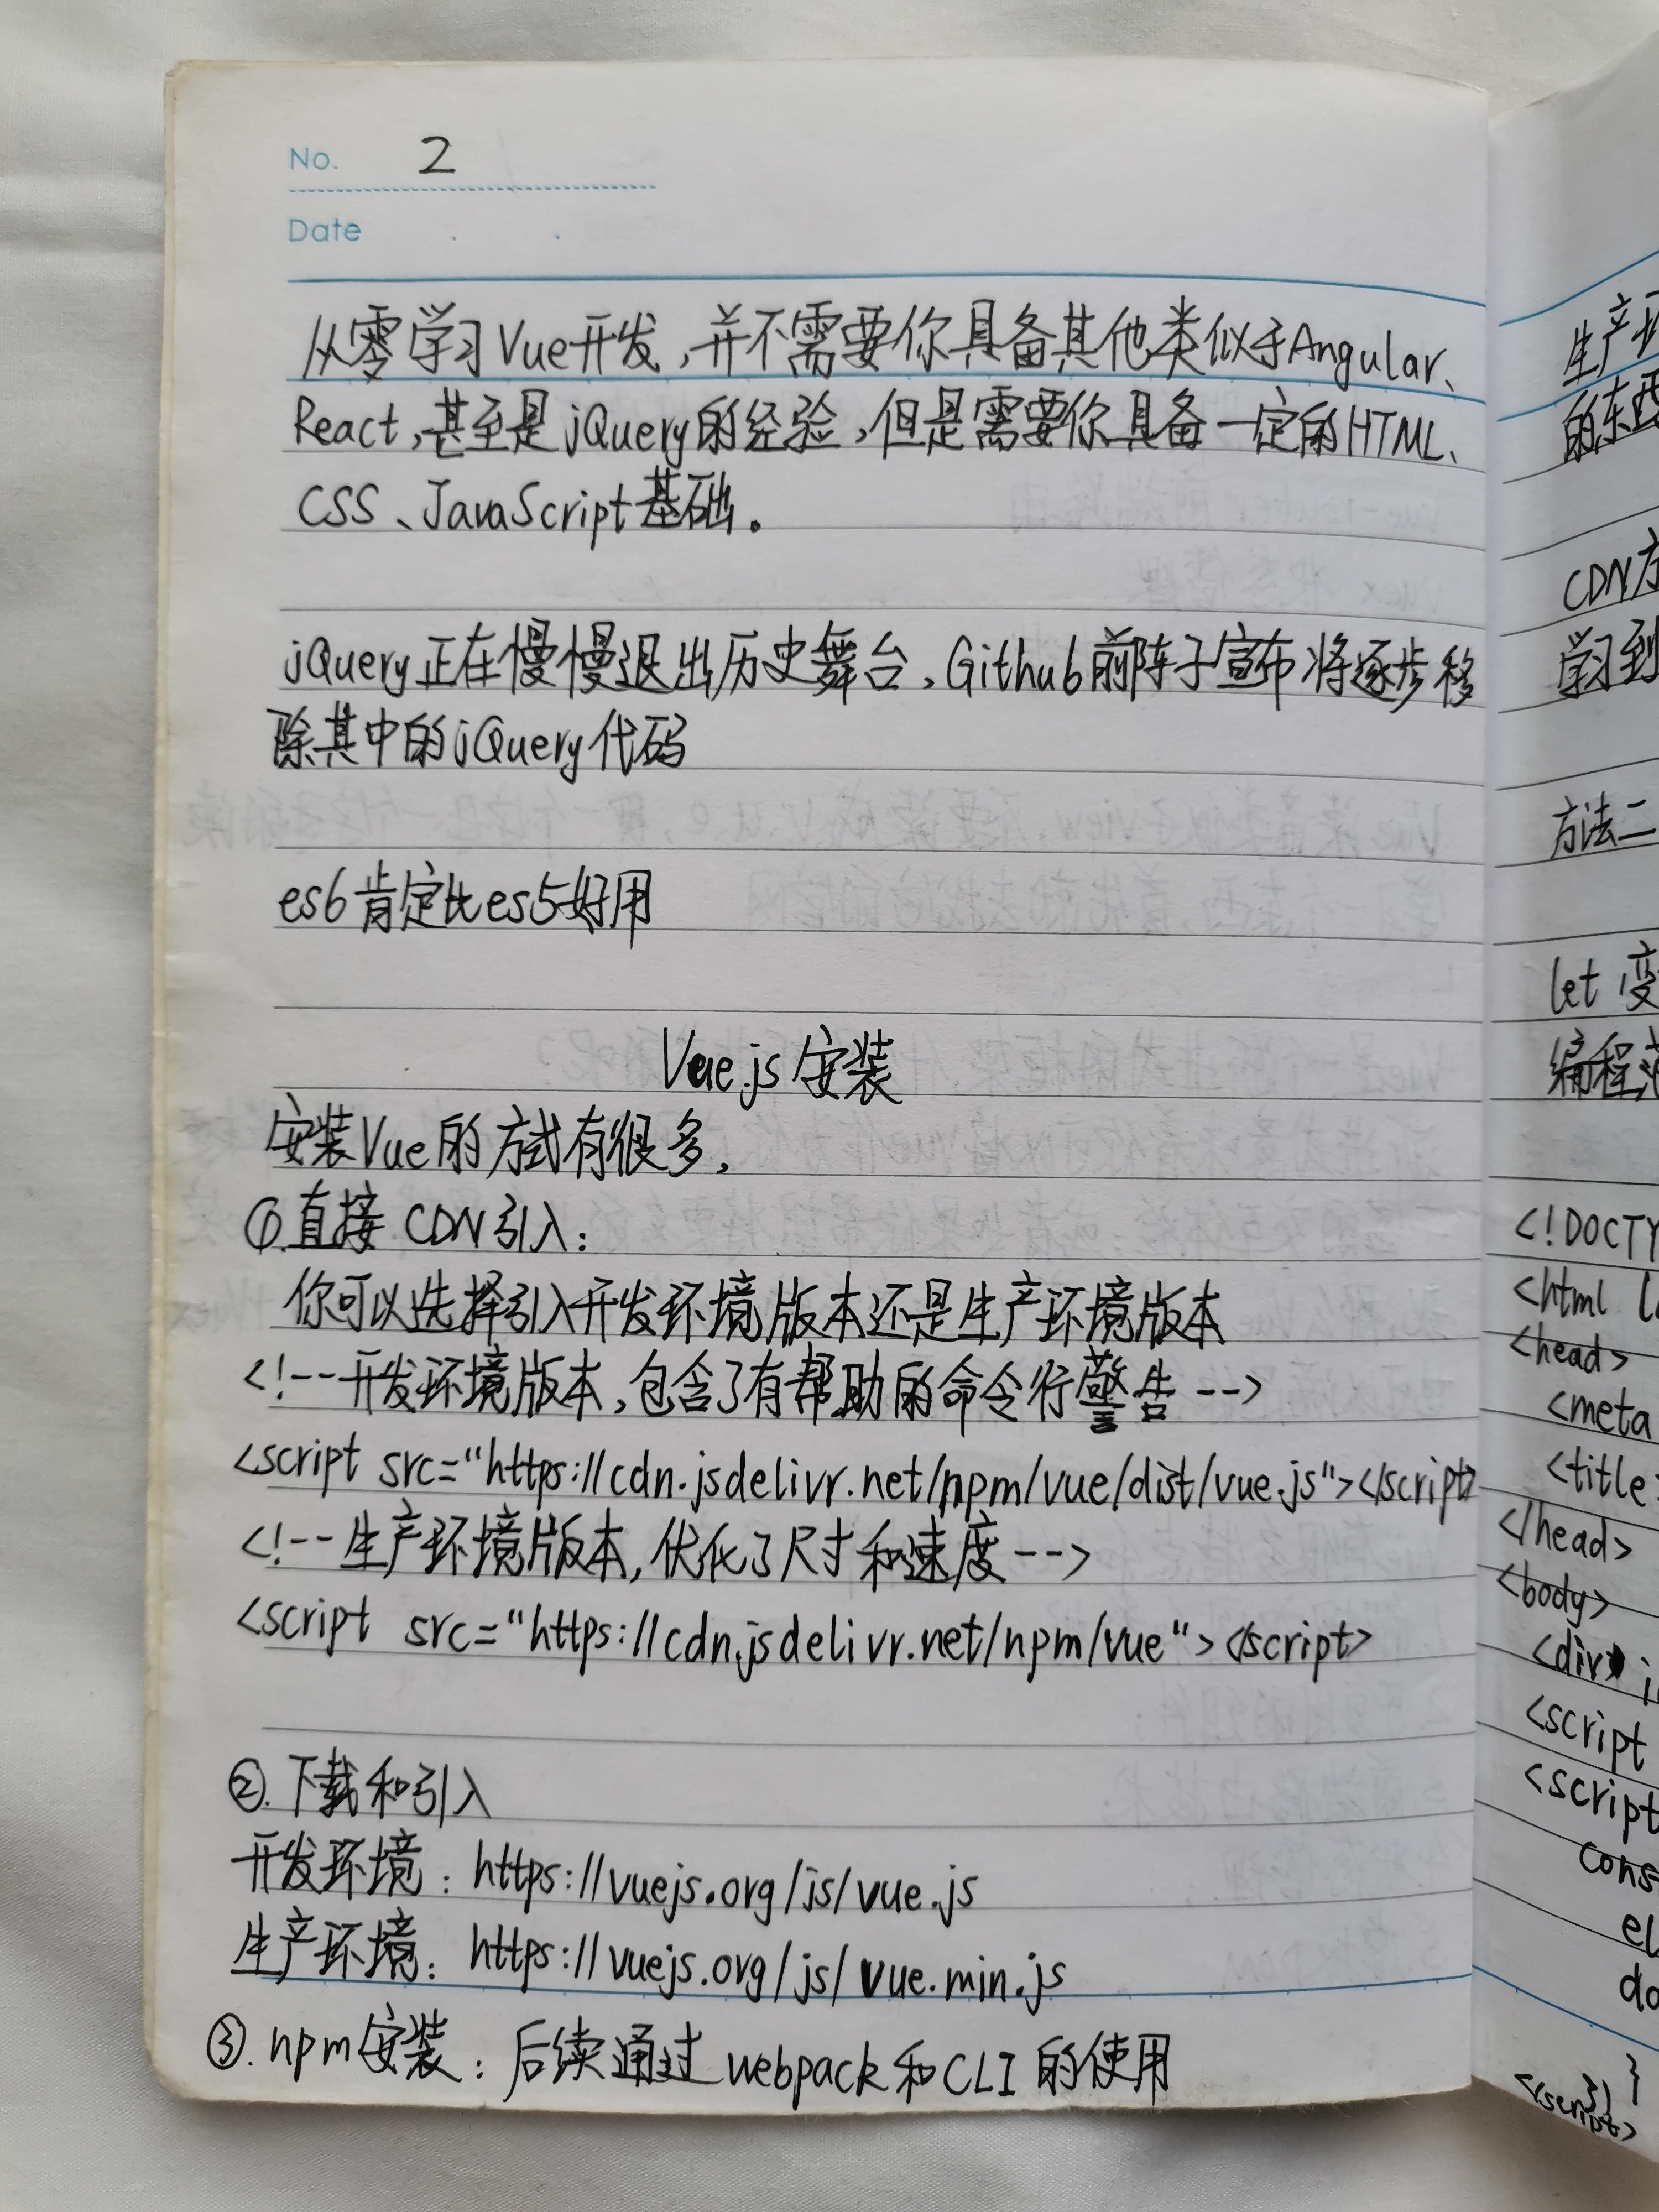 No. 2
Date
从零学习Vue开发,并不需要你具备其他类似于Angular、
React,甚至是jQuery的经验,但是需要你具备一定的HTML、
CSS、JavaScript基础。
jQuery正在慢慢退出历史舞台,Github前阵子宣布将逐步移
除其中的jQuery代码
es6肯定比es5好用
Vue.js安装
安装Vue的方式有很多,
①.直接CDN引入:
你可以选择引入开发环境版本还是生产环境版本
<!--开发环境版本,包含了有帮助的命令行警告-->
<script src="https://cdn.jsdelivr.net/npm/vue/dist/vue.js"></script>
<!--生产环境版本,优化了尺寸和速度-->
<script src="https://cdn.jsdelivr.net/npm/vue"></script>
②.下载和引入
开发环境:https://vuejs.org/js/vue.js
生产环境:https://vuejs.org/js/vue.min.js
③.npm安装:后续通过webpack和CLI的使用
生产环
的东西
CDN方
学习到
方法二
let 变
编程范
<!DOCTY
<html l
<head>
<meta
<title>
</head>
<body>
<div i
<script
<script
cons
el
da
}
})
</script>